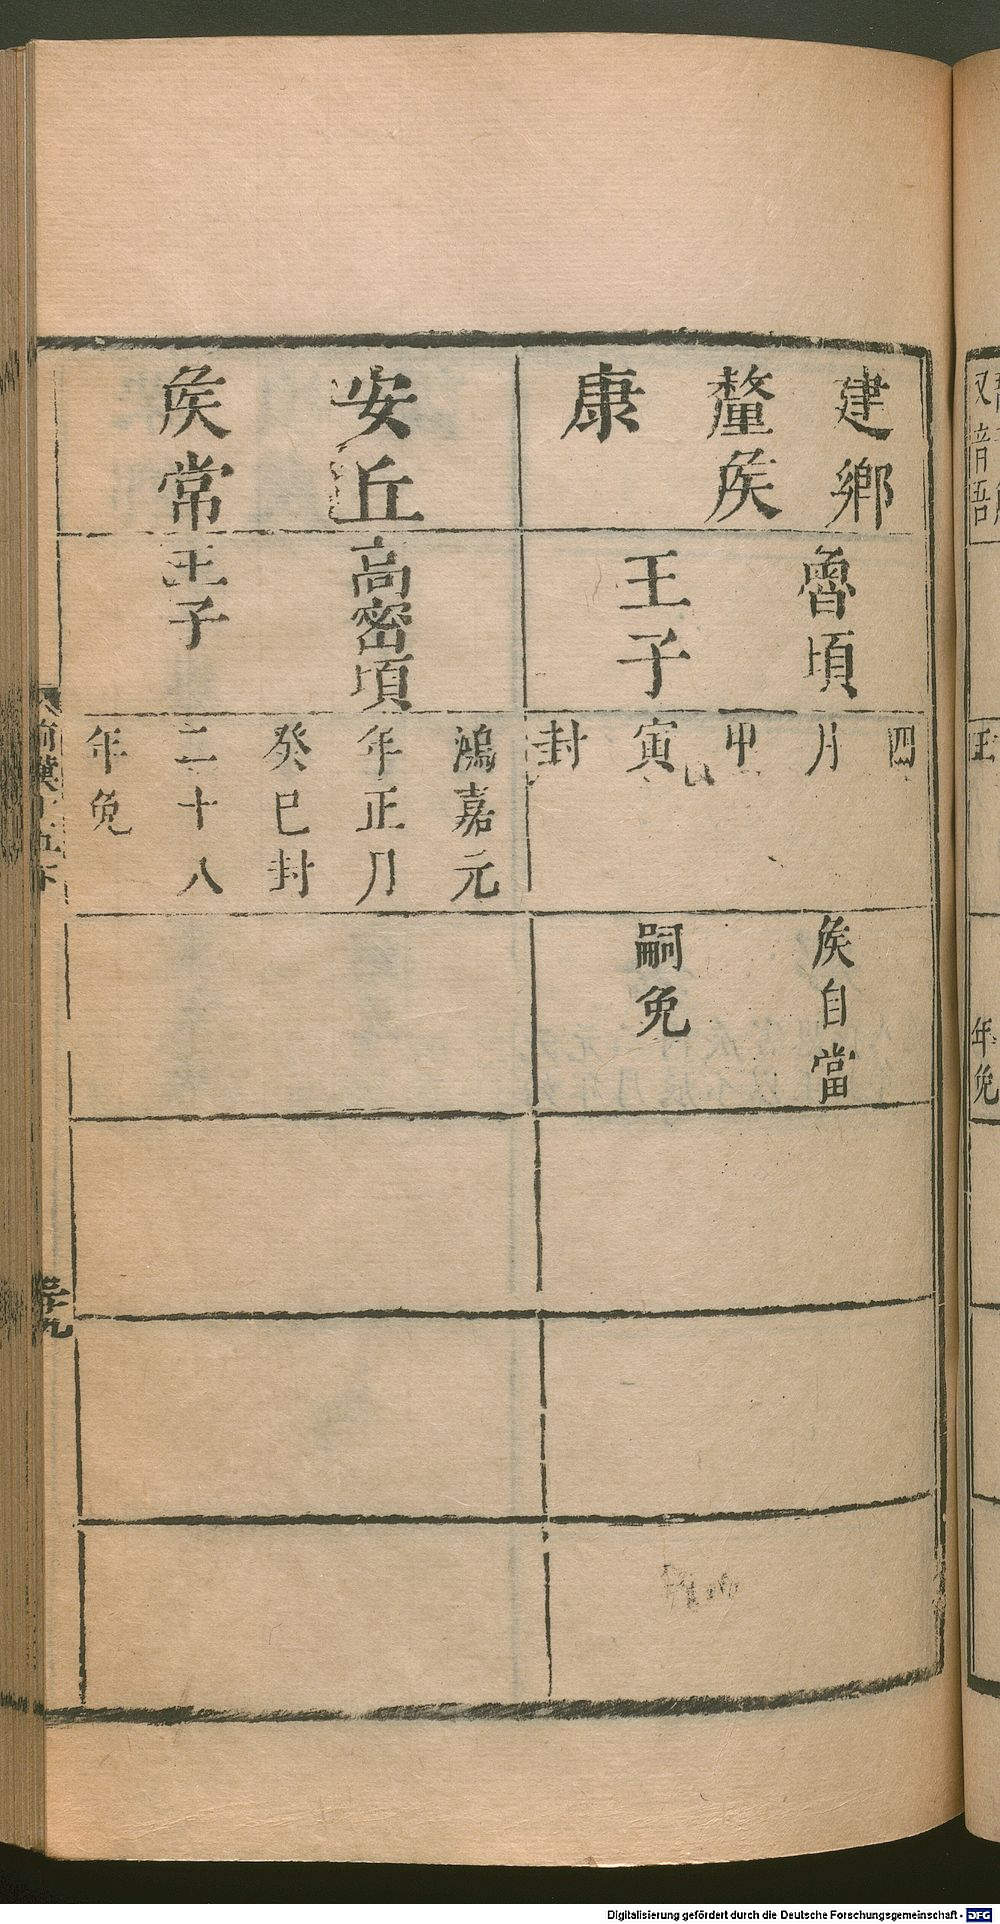 建鄉
釐矦
康
魯頃
王子
四
月
甲
寅
封
矦自當
嗣免
安丘
矦常
高密頃
王子
鴻嘉元
年正月
癸巳封
二十八
年免
年免
Digitalisierung gefördert durch die Deutsche Forschungsgemeinschaft - DFG